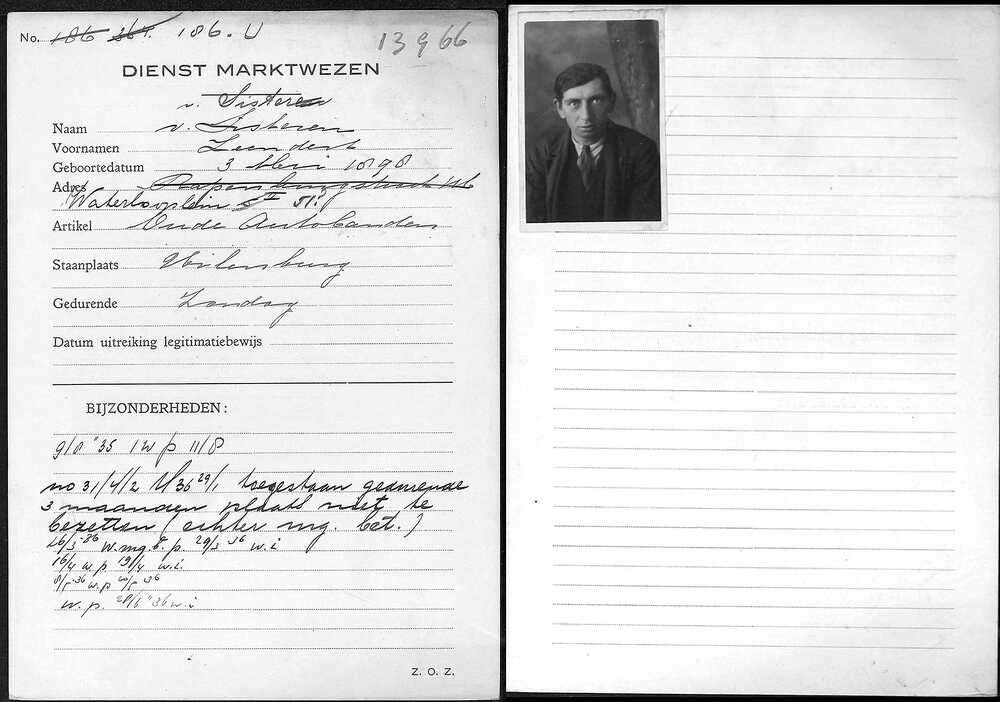 No. 186 367. 186. U
13 9 66
DIENST MARKTWEZEN
v. Sisteren
Naam v. Sisteren
Voornamen Leendert
Geboortedatum 3 Mei 1898
Adres Rapenburgerstraat
Waterlooplein 5 II 51?
Artikel Oude Autobanden
Staanplaats Uilenburg
Gedurende Zondag
Datum uitreiking legitimatiebewijs
BIJZONDERHEDEN:
9/8 "35 1 w p 11/8
no 31/4/2 M/36 29/1 toegestaan gedurende
3 maanden plaats niet te
bezetten (echter mg. bet.)
26/3-36 w.mg.b.p. 29/3 36 w.i
16/4 w p 19/4 w.i.
8/5-36 w.p 36
w.p. 28/6 "36 w.i
Z. O. Z.